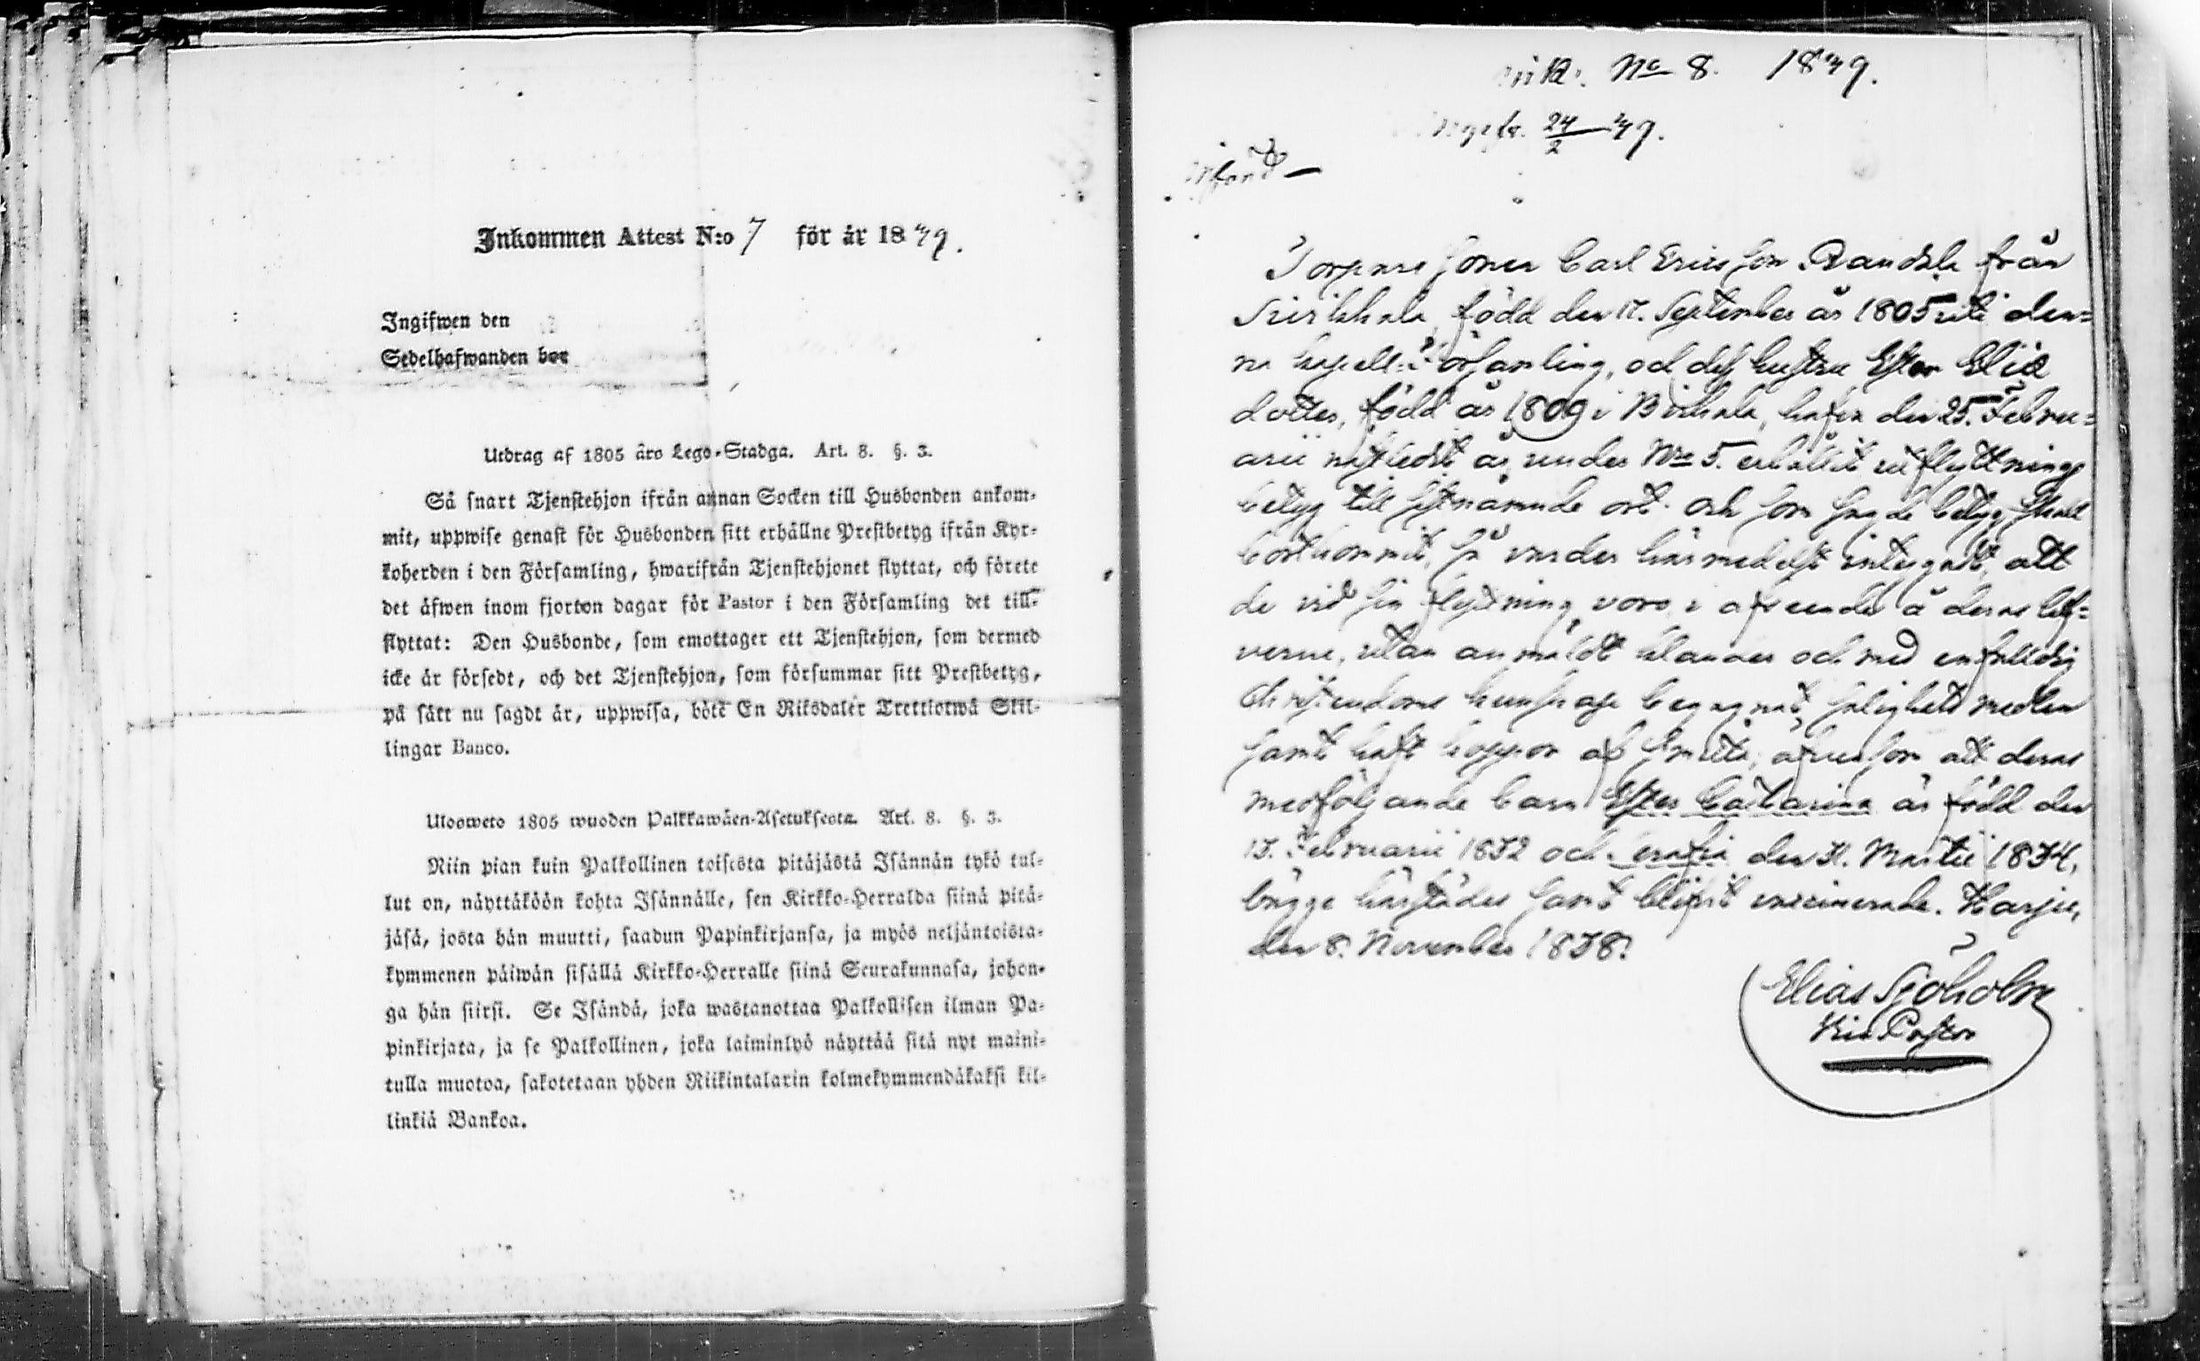 Inkommen Attest N:o 7 för år 1849.
Ingifwen den
Sedelhafwanden bor
Utdrag af 1805 års Lego-Stadga. Art. 8. §. 3.
Så snart Tjenstehjon ifrån annan Socken till Husbonden ankom-
mit, uppwise genast för Husbonden sitt erhållne Prestbetyg ifrån Kyr-
koherden i den Församling, hwarifrån Tjenstehjonet flyttat, och förete
det äfwen inom fjorton dagar för Pastor i den Församling det till-
flyttat: Den Husbonde, som emottager ett Tjenstehjon, som dermed
icke är försedt, och det Tjenstehjon, som försummar sitt Prestbetyg,
på sätt nu sagdt är, uppwisa, böte En Riksdaler Trettiotwå Skil-
lingar Banco.
Ulosweto 1805 wuoden Palkkawäen-Asetuksesta. Art. 8. §. 3.
Niin pian kuin Palkollinen toisesta pitäjästä Isännän tykö tul-
lut on, näyttäköön kohta Isännälle, sen Kirkko-Herralda siinä pitä-
jäsä, josta hän muutti, saadun Papinkirjansa, ja myös neljäntoista-
kymmenen päiwän sisällä Kirkko-Herralle siinä Seurakunnasa, johon-
ga hän siirsi. Se Isändä, joka wastanottaa Palkollisen ilman Pa-
pinkirjata, ja se Palkollinen, joka laiminlyö näyttää sitä nyt maini-
tulla muotoa, sakotetaan yhden Riikintalarin kolmekymmendäkaksi kil-
linkiä Bankoa.
No 8. 1849.
24/2 49.
Torpare sonen Carl Ericsson från
född den 17. September år 1805 uti den-
na kapell-Församling, och dess hustru Ester Elia
dotter, född år 1809 i Birkala, hafva den 25. Febru-
arii under No 5. erhållit utflyttnings
betyg till sistnämnde ort och som sagde betyg skall
bortkommit, så varder härmedelst intygadt, att
de vid sin flyttning voro i afseende å deras lef-
verne, utan anmäldt klander och med enfaldig
christendoms kunskap begagnat salighets medlen
samt haft koppor af smitta; äfvensom att deras
medföljande barn Ester Catharina är född den
13. Februarii 1832 och den 31. Martii 1834,
bägge härstädes samt blifvit vaccinerade. Harju,
den 8. November 1838.
Elias Sjöholm
Vice Pastor